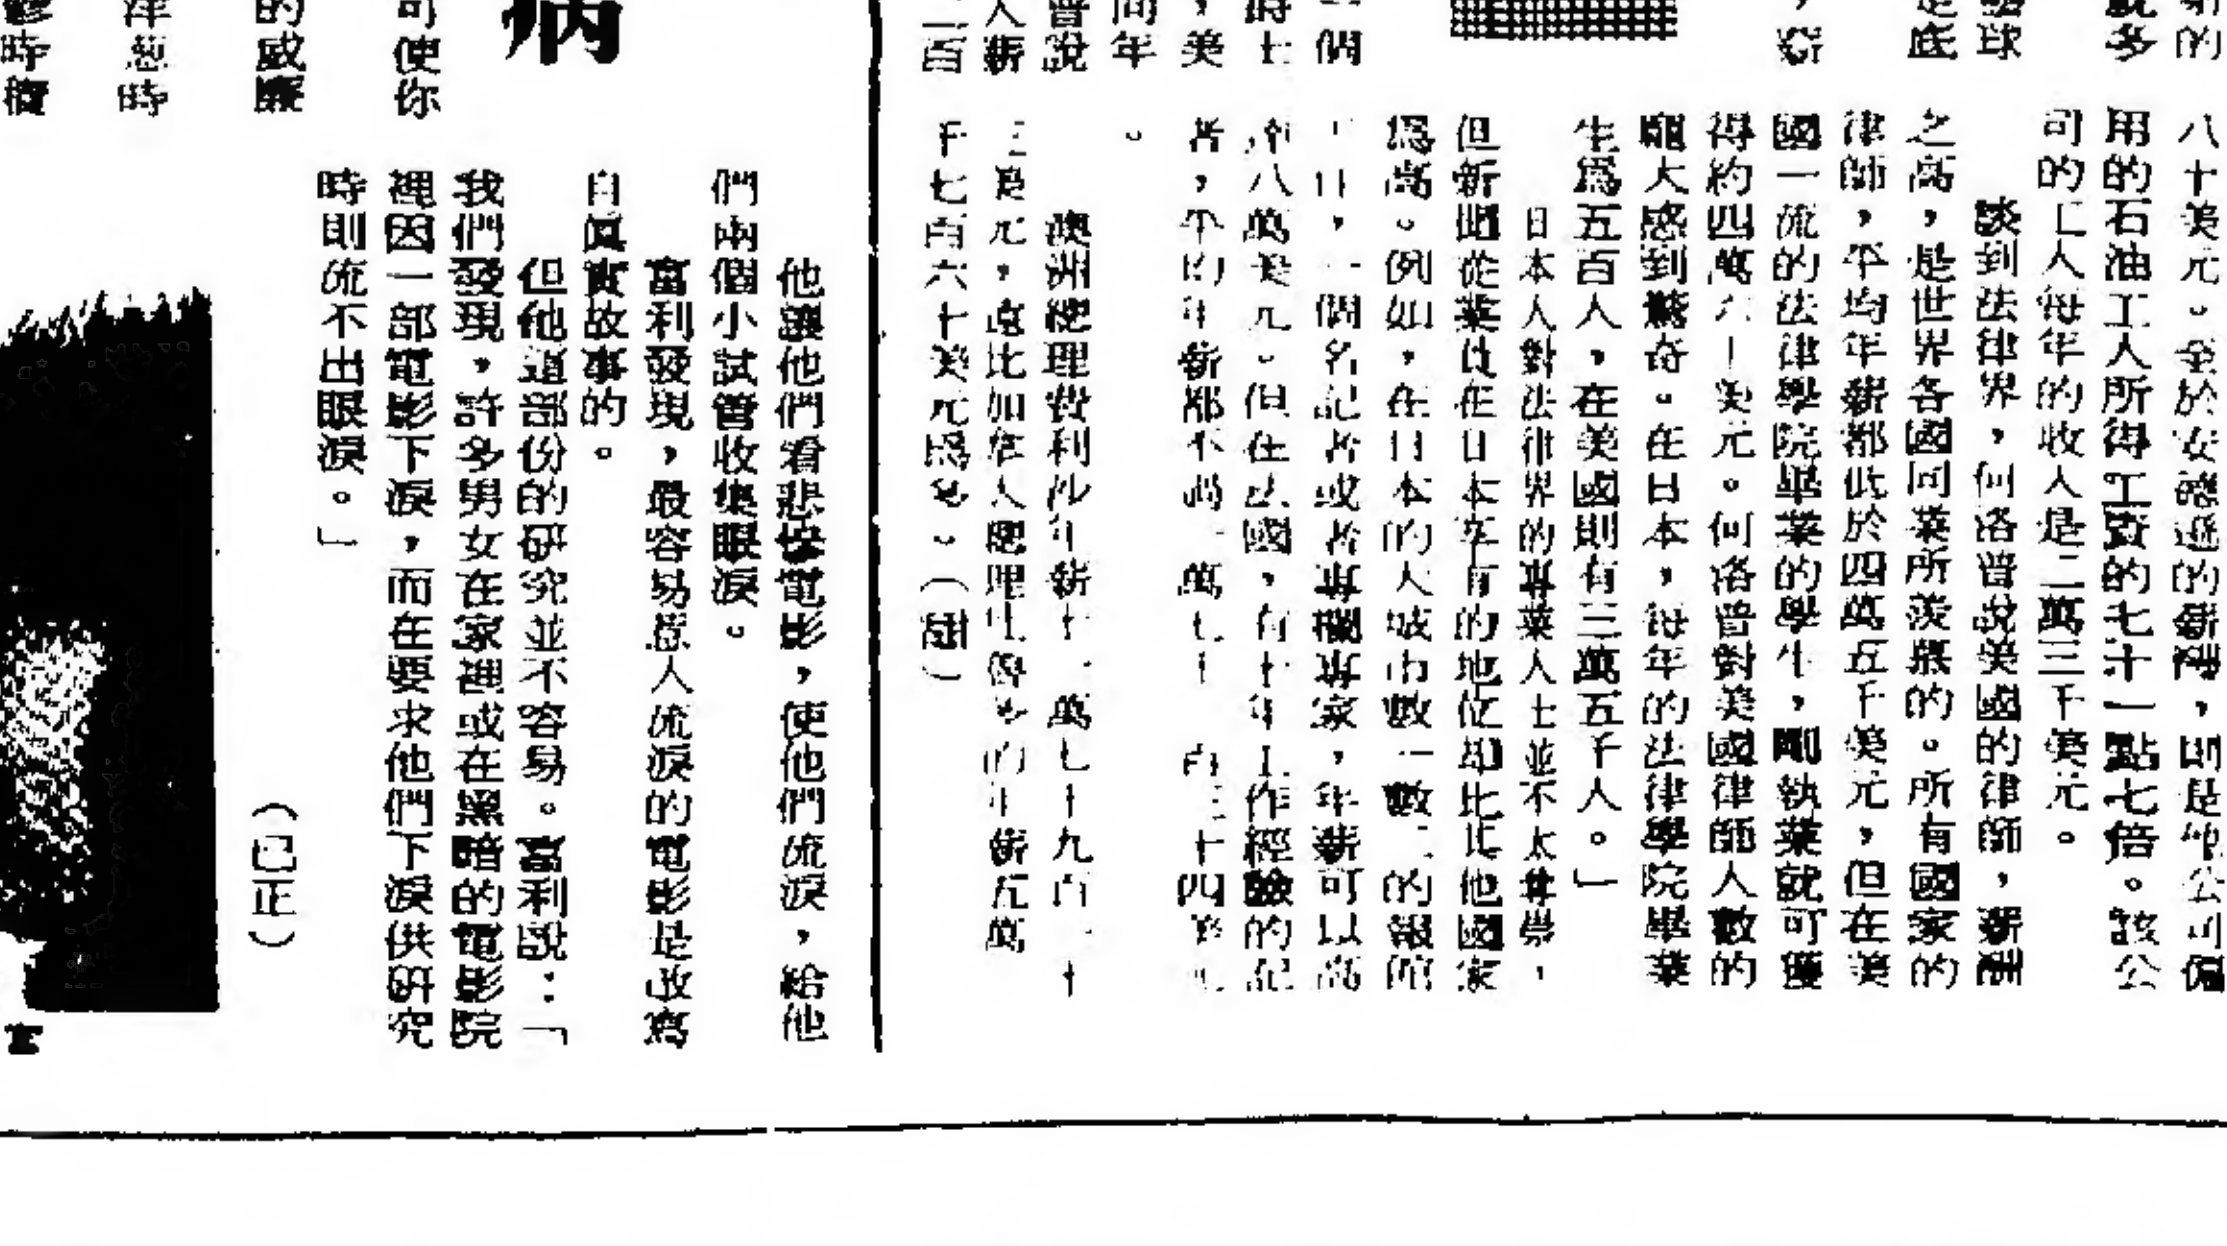 的
就多
球
是底
，薪
一個
時士
，美
同年
普說
人薪
二百
八十美元。至於安   的薪酬，則是他公司僱
用的石油工人所得工資的七十一點七倍。該公
司的工人每年的收入是二萬三千美元。
談到法律界，何洛普說美國的律師，薪酬
之高，是世界各國同業所羨慕的。所有國家的
律師，平均年薪都低於四萬五千美元，但在美
國一流的法律學院畢業的學生，剛執業就可獲
得約四萬六千美元。何洛普對美國律師人數的
龐大感到驚奇。在日本，每年的法律學院畢業
生爲五百人，在美國則有三萬五千人。」
日本人對法律界的專業人士並不太尊崇，
但新聞從業員在日本享有的地位却比其他國家
爲高。例如，在日本的大城市數一數二的報館
工作，一個名記者或者專欄專家，年薪可以高
達八萬美元。但在法國，有十年工作經驗的記
者，平均年薪都不過二萬七千  百三十四美元
。
澳洲總理費利沙年薪十  萬七千九百  十
三美元，遠比加拿大總理杜魯多的年薪五萬
千七百六十美元爲多。（甜）
病
他讓他們看悲慘電影，使他們流淚，給他
們兩個小試管收集眼淚。
富利發現，最容易惹人流淚的電影是改寫
自眞實故事的。
但他這部份的研究並不容易。富利說：「
我們發現，許多男女在家裡或在黑暗的電影院
裡因一部電影下淚，而在要求他們下淚供研究
時則流不出眼淚。」
（已正）
可使你
的威廉
洋葱時
時積